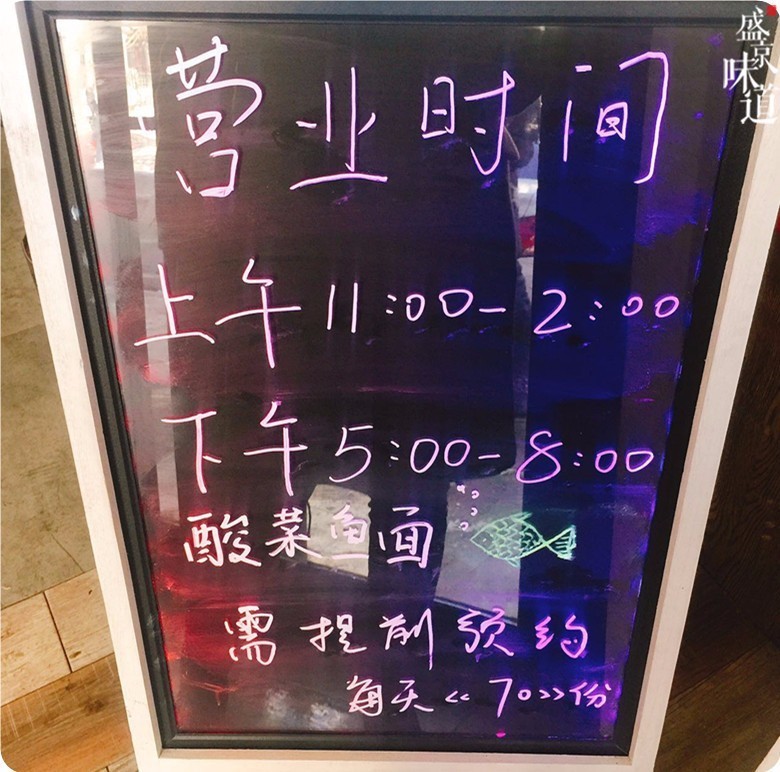 盛京
味道
营业时间
上午 11:00-2:00
下午 5:00-8:00
酸菜鱼面
需提前预约
每天《70》份